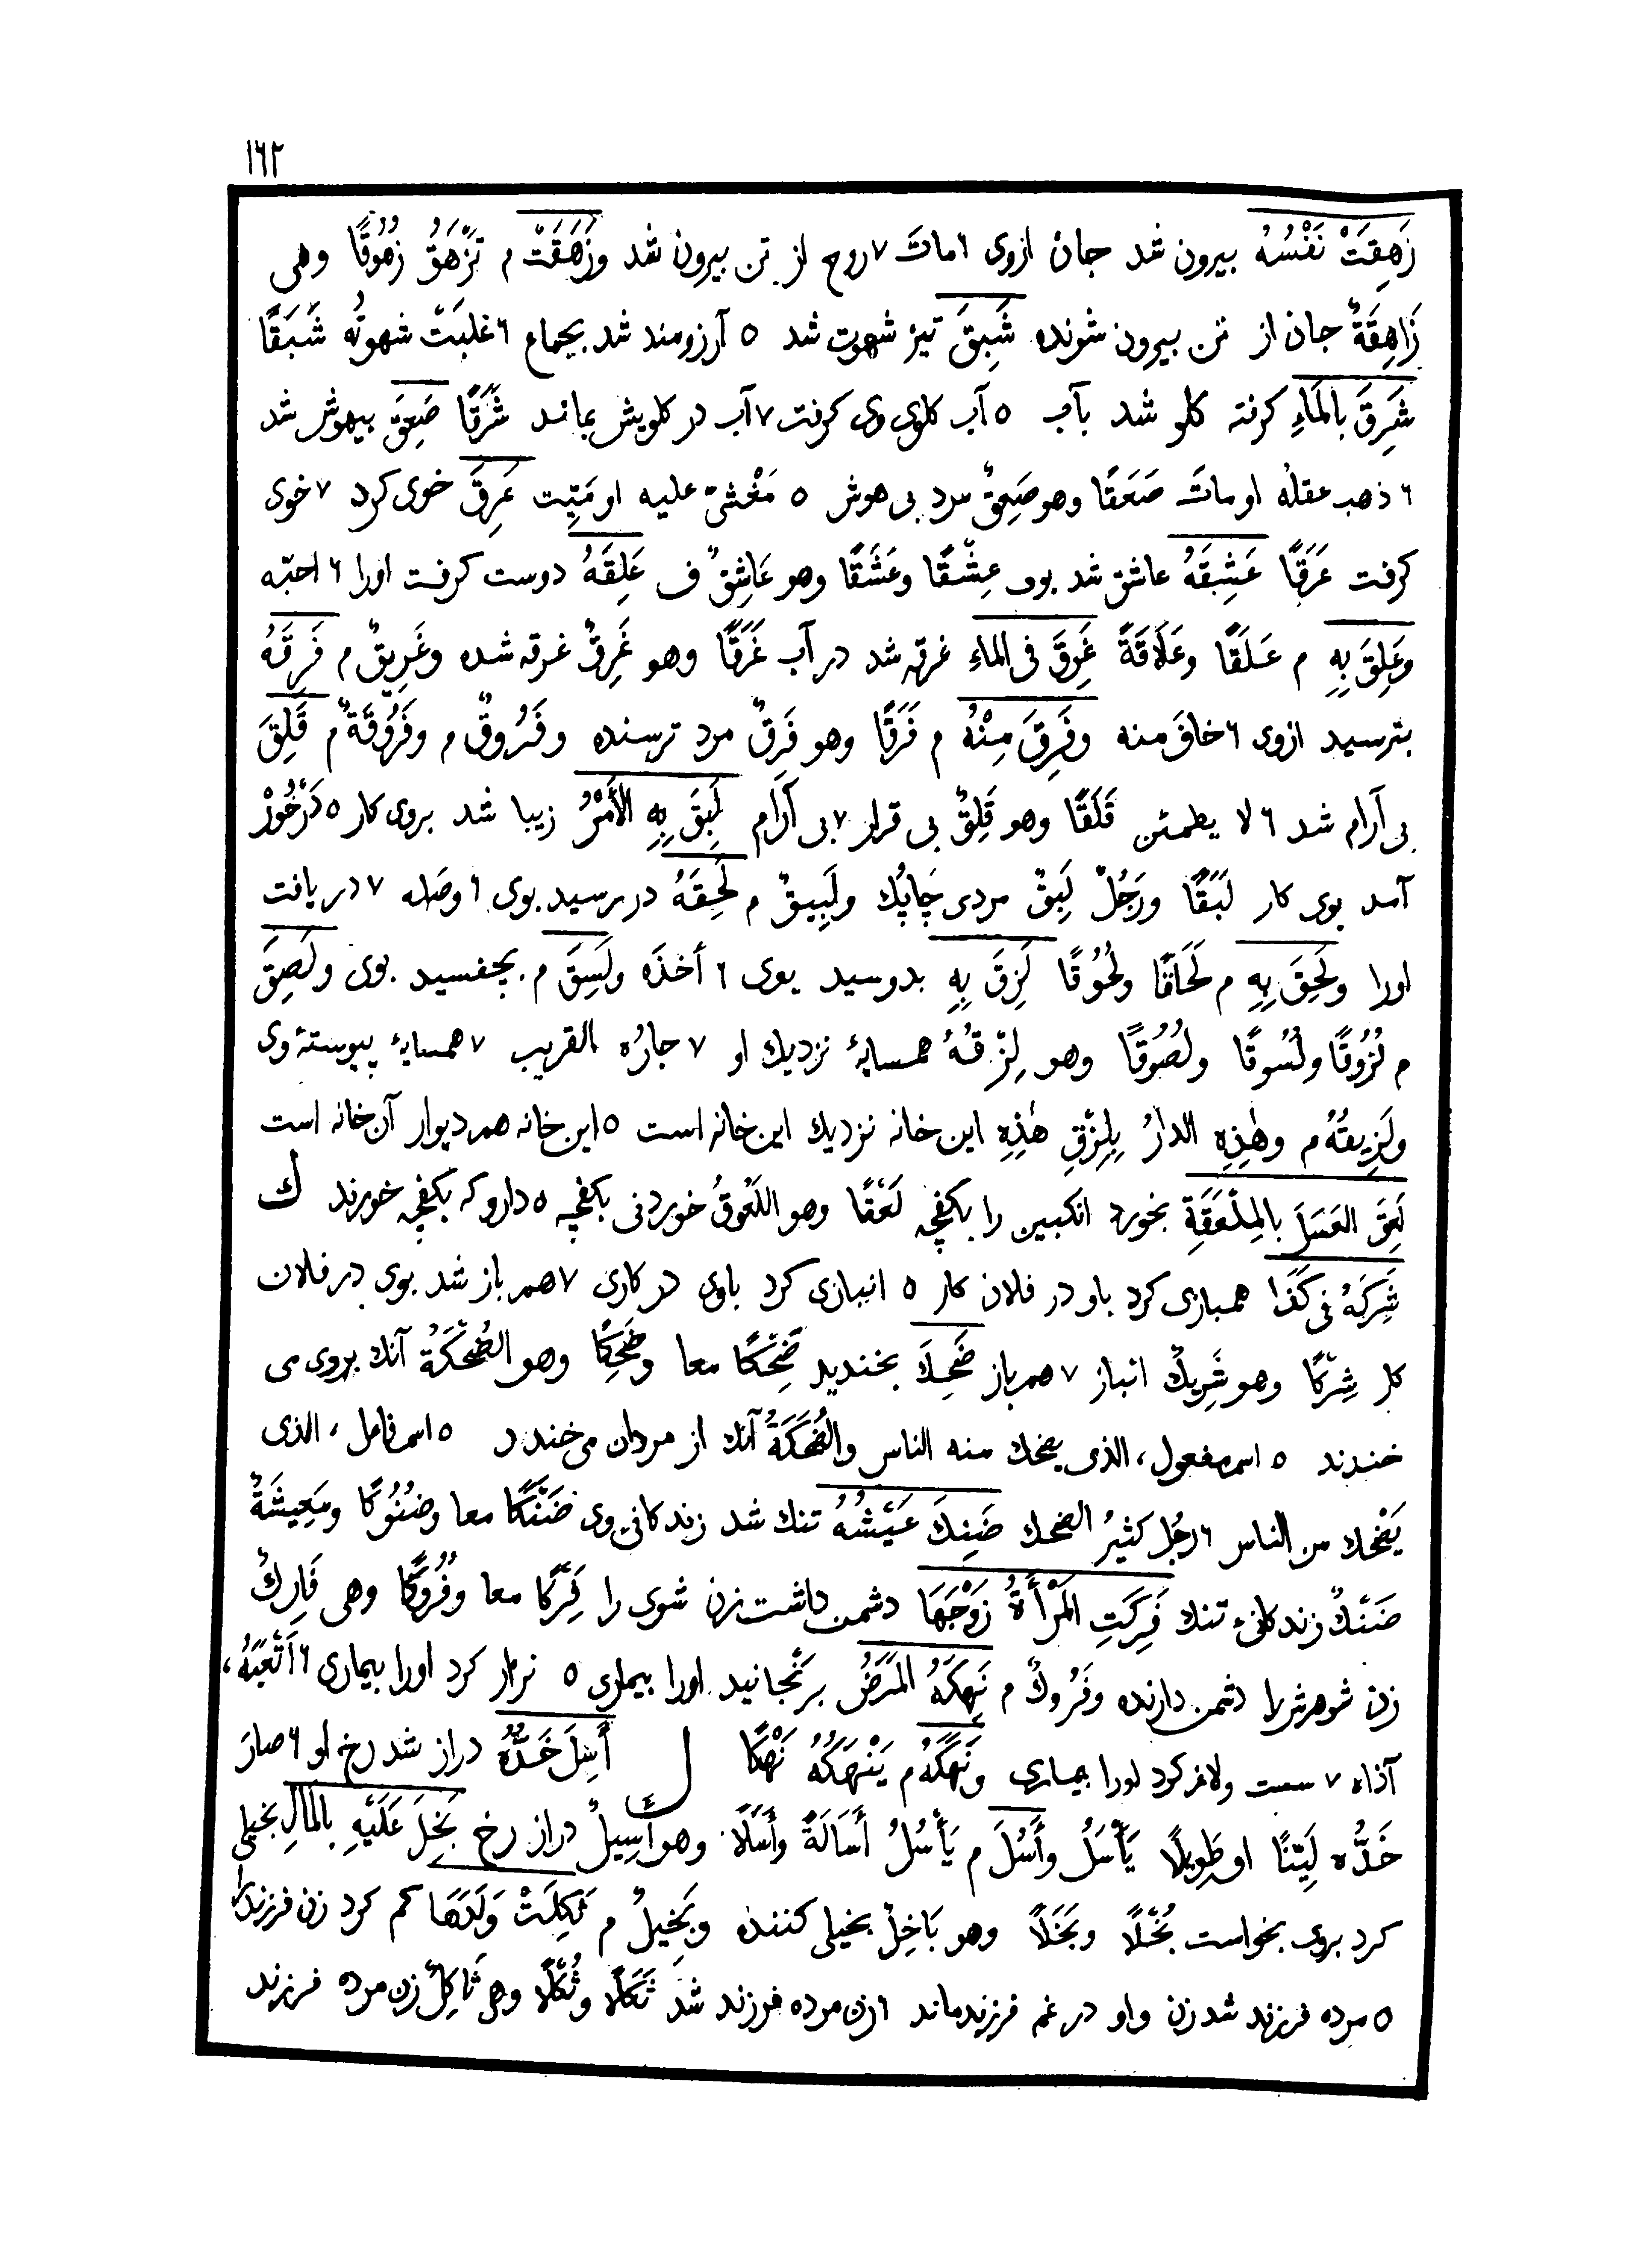 ١٦٢
زَهِقَتْ نَفْسُهُ بیرون شد جان ازوی ٦ ماتَ ٧ روح از تن بیرون شد وزَهَقَتْ م تَزْهَقُ زُهُوقًا وهی
زَاهِقَةٌ جان از تن بیرون شونده شَبِقَ تیز شهوت شد ٥ آرزومند شد بجماع ٦ غلبَتْ شهوتُه شَبَقًا
شَرِقَ بِالمَاءِ کرفته کلو شد بآب ٥ آب کلوی وی کرفت ٧ آب در کلویش بماند شَرَقًا صَعِقَ بیهوش شد
٦ ذهب عقلُه او ماتَ صَعَقًا وهو صَعِقٌ مرد بی هوش ٥ مَغْشیّ علیه او مَیِّت عَرِقَ خوی کرد ٧ خوی
کرفت عَرَقًا عَشِقَهُ عاشق شد بوی عِشْقًا وعَشَقًا وهو عَاشِقٌ ف عَلِقَهُ دوست کرفت اورا ٦ احبّه
وعَلِقَ بِهِ م عَلَقًا وعَلَاقَةً غَرِقَ فی الماءِ غرقه شد در آب غَرَقًا وهو غَرِقٌ غرقه شده وغَرِیقٌ م فَرِقَهُ
بترسید ازوی ٦ خافَ منه وفَرِقَ مِنْهُ م فَرَقًا وهو فَرِقٌ مرد ترسنده وفَرُوقٌ م وفَرُوقَةٌ م قَلِقَ
بی آرام شد ٦ لا یطمئن قَلَقًا وهو قَلِقٌ بی قرار ٧ بی آرام لَبِقَ بِهِ الأَمْرُ زیبا شد بروی کار ٥ دَرْخُورْ
آمد بوی کار لَبَقًا ورَجُلٌ لَبِقٌ مردی چَابُك ولَبِیقٌ م لَحِقَهُ در رسید بوی ٦ وصله ٧ دریافت
اورا ولَحِقَ بِهِ م لَحَاقًا ولُحُوقًا لَزِقَ بِهِ بدوسید بوی ٦ أخذَه ولَسِقَ م بچفسید بوی ولَصِقَ
م لُزُوقًا ولُسُوقًا ولُصُوقًا وهو لِزْقُهُ همسایهٔ نزدیك او ٧ جارُه القریب ٧ همسایهٔ پیوستهٔ وی
ولَزِیقُهُ م وهٰذِهِ الدارُ بِلِزْقِ هٰذِهِ این خانه نزدیك این خانه است ٥ این خانه هم دیوار آن خانه است
لَعِقَ العَسَلَ بالمِلْعَقَةِ بخورد انکبین را بکفچه لَعْقًا وهو اللَعُوقُ خوردنی بکفچه ٥ دارو که بکفچه خورند ك
شَرِکَهُ فی کَذَا همبازی کرد باو در فلان کار ٥ انبازی کرد باوی در کاری ٧ هم باز شد بوی در فلان
کار شِرْکًا وهو شَرِیكٌ انباز ٧ هم باز ضَحِكَ بخندید ضَحْکًا معا وضَحِکًا وهو الضُحْکَةُ آنك بروی می
خندند ٥ اسم مفعول، الذی یضحك منه الناس والضُحَکَةُ آنك از مردان می خندد ٥ اسم فاعل، الذی
یَضْحك من الناس ٦ رجُل کثیرُ الضحك ضَنِكَ عَیْشُهُ تنك شد زندکانی وی ضَنْکًا معا وضُنُوکًا ومَعِیشَةٌ
ضَنْكٌ زندکانیء تنك فَرِکَتِ المَرْأَةُ زَوْجَهَا دشمن داشت زن شوی را فِرْکًا معا وفُرُوکًا وهی فَارِكٌ
زن شوهرش را دشمن دارنده وفَرُوكٌ م نَهِکَهُ المَرَضُ برنجانید اورا بیماری ٥ نزار کرد اورا بیماری ٦ اَتْعَبَهُ،
آذاه ٧ سست ولاغر کرد اورا بیماری ونَهَکَهُ م یَنْهَکُهُ نَهْکًا ل أَسِلَ خَدُّهُ دراز شد رخ او ٦ صارَ
خَدُّه لَیِّنًا او طَوِیلًا یَأْسَلُ وأَسُلَ م یَأْسُلُ أَسَالَةً وأَسَلًا وهو أَسِیلٌ دراز رخ بَخِلَ عَلَیْهِ بالمَالِ بخیلی
کرد بروی بخواست بُخْلًا وبَخَلًا وهو بَاخِلٌ بخیلی کننده وبَخِیلٌ م ثَکِلَتْ وَلَدَهَا کم کرد زن فرزند را
٥ مرده فرزند شد زن واو در غم فرزند ماند ٦ زن مرده فرزند شد ثَکَلًا وثُکْلًا وهی ثَاکِلٌ زن مرده فرزند